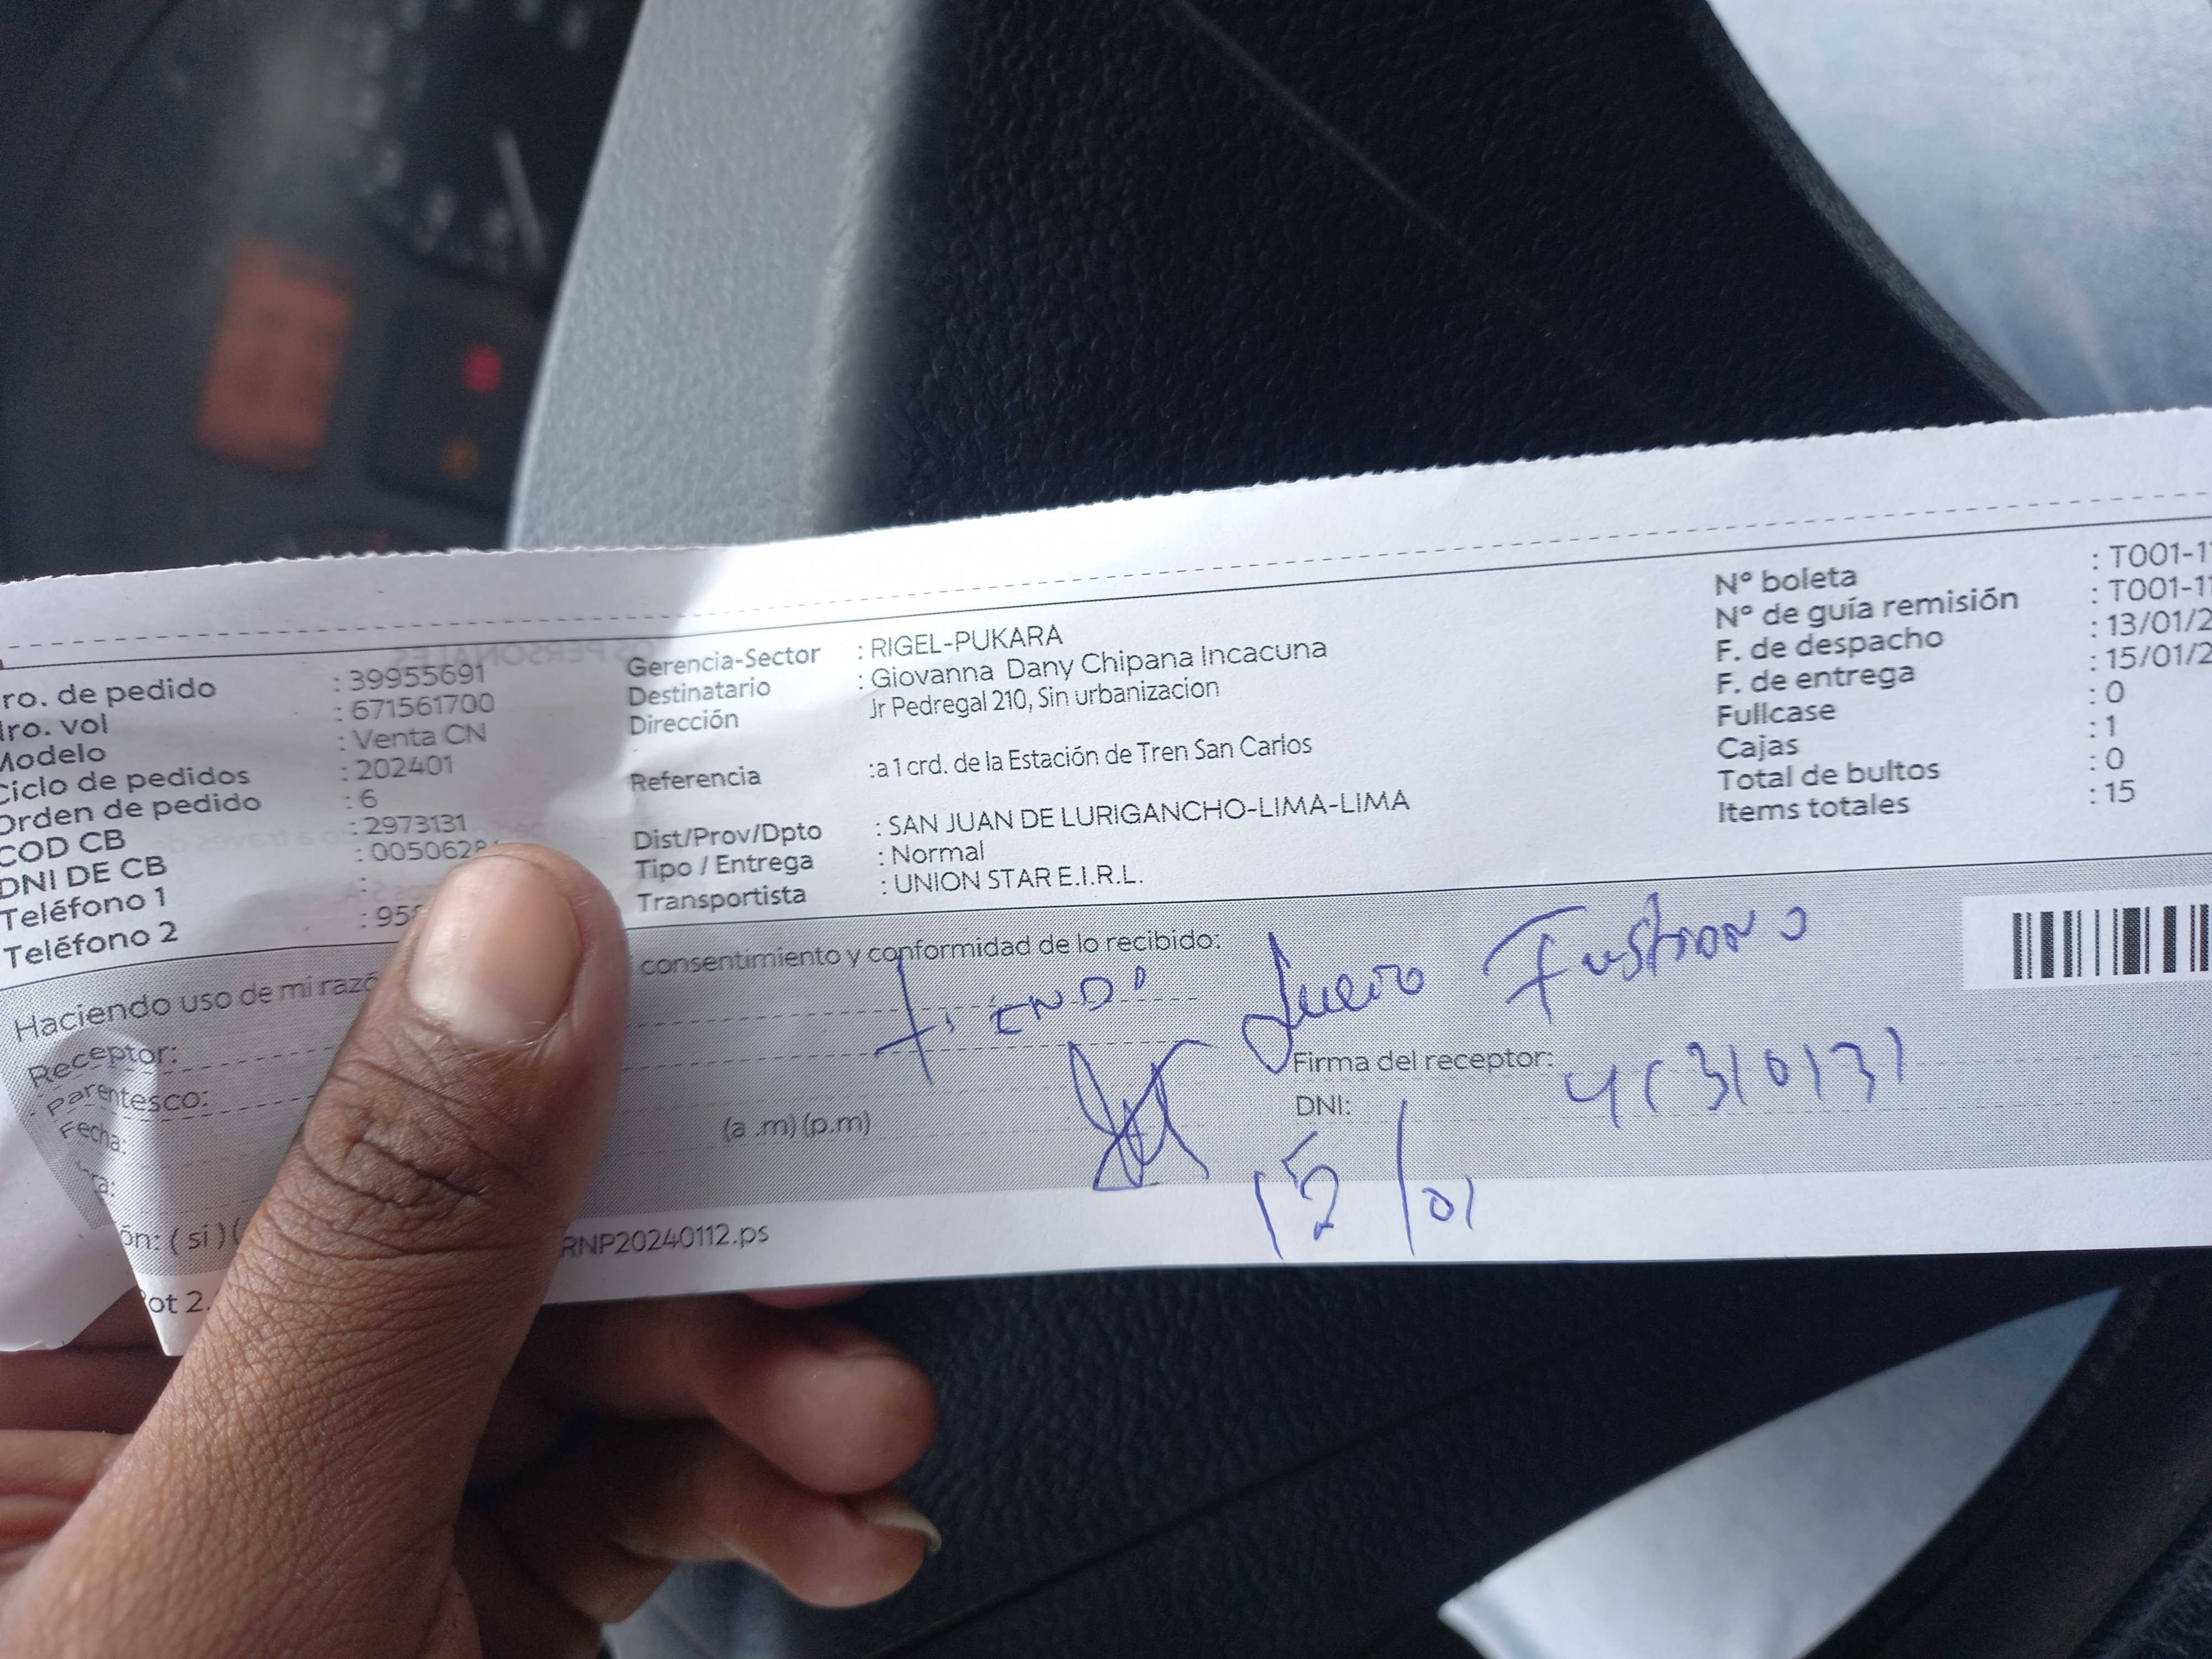 ro. de pedido : 39955691
ro. vol : 671561700
Modelo : Venta CN
Ciclo de pedidos : 202401
Orden de pedido : 6
COD CB : 2973131
DNI DE CB : 0050628
Teléfono 1 :
Teléfono 2 : 95
Gerencia-Sector : RIGEL-PUKARA
Destinatario : Giovanna Dany Chipana Incacuna
Dirección Jr Pedregal 210, Sin urbanizacion
Referencia :a 1 crd. de la Estación de Tren San Carlos
Dist/Prov/Dpto : SAN JUAN DE LURIGANCHO-LIMA-LIMA
Tipo / Entrega : Normal
Transportista : UNION STAR E.I.R.L.
Nº boleta : T001-1
Nº de guía remisión : T001-11
F. de despacho : 13/01/2
F. de entrega : 15/01/2
Fullcase : 0
Cajas : 1
Total de bultos : 0
Items totales : 15
Haciendo uso de mi razó consentimiento y conformidad de lo recibido:
Receptor:
Parentesco:
Fecha:
ra:
(a .m) (p.m)
Firma del receptor:
DNI:
15/01
ón: ( si ) (
RNP20240112.ps
ot 2.